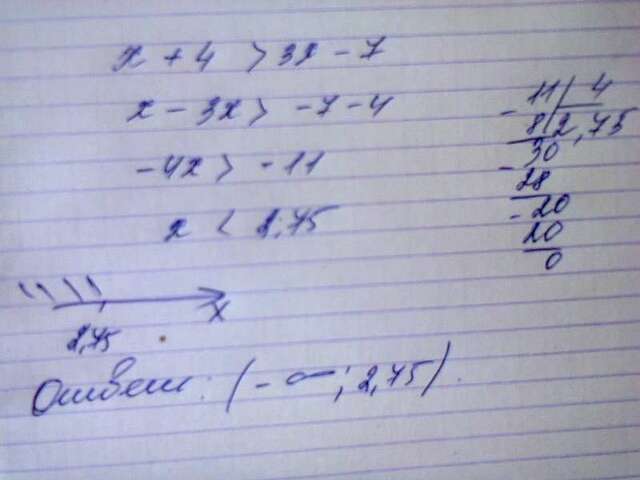 x + 4 > 3x - 7
x - 3x > -7 - 4
-4x > -11
x < 2,75
2,75
x
Ответ: (-∞; 2,75).
- 11 | 4
8 | 2,75
30
- 28
- 20
20
0